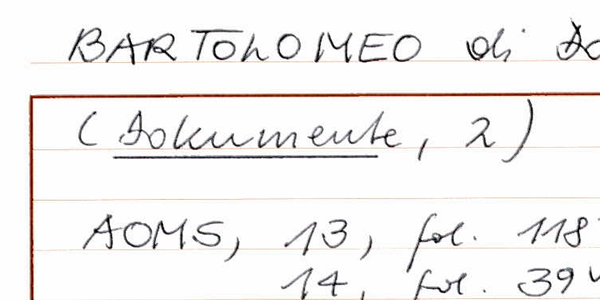 BARTOLOMEO di
(Dokumente, 2)
AOMS, 13, fol. 118
14, fol. 394